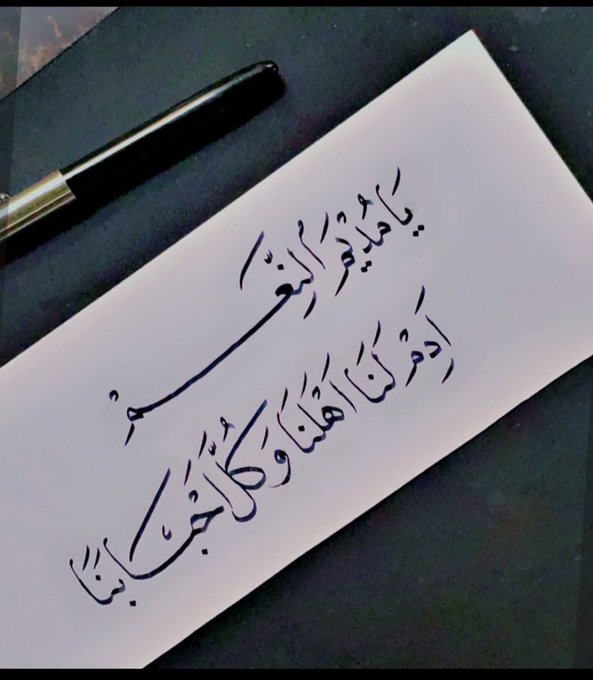 يَا مُدِيْمَ الْنِّعَمْ
اَدِمْ لَنَا اَهْلَنَا وَكُلَّ اَحْبَابَنَا